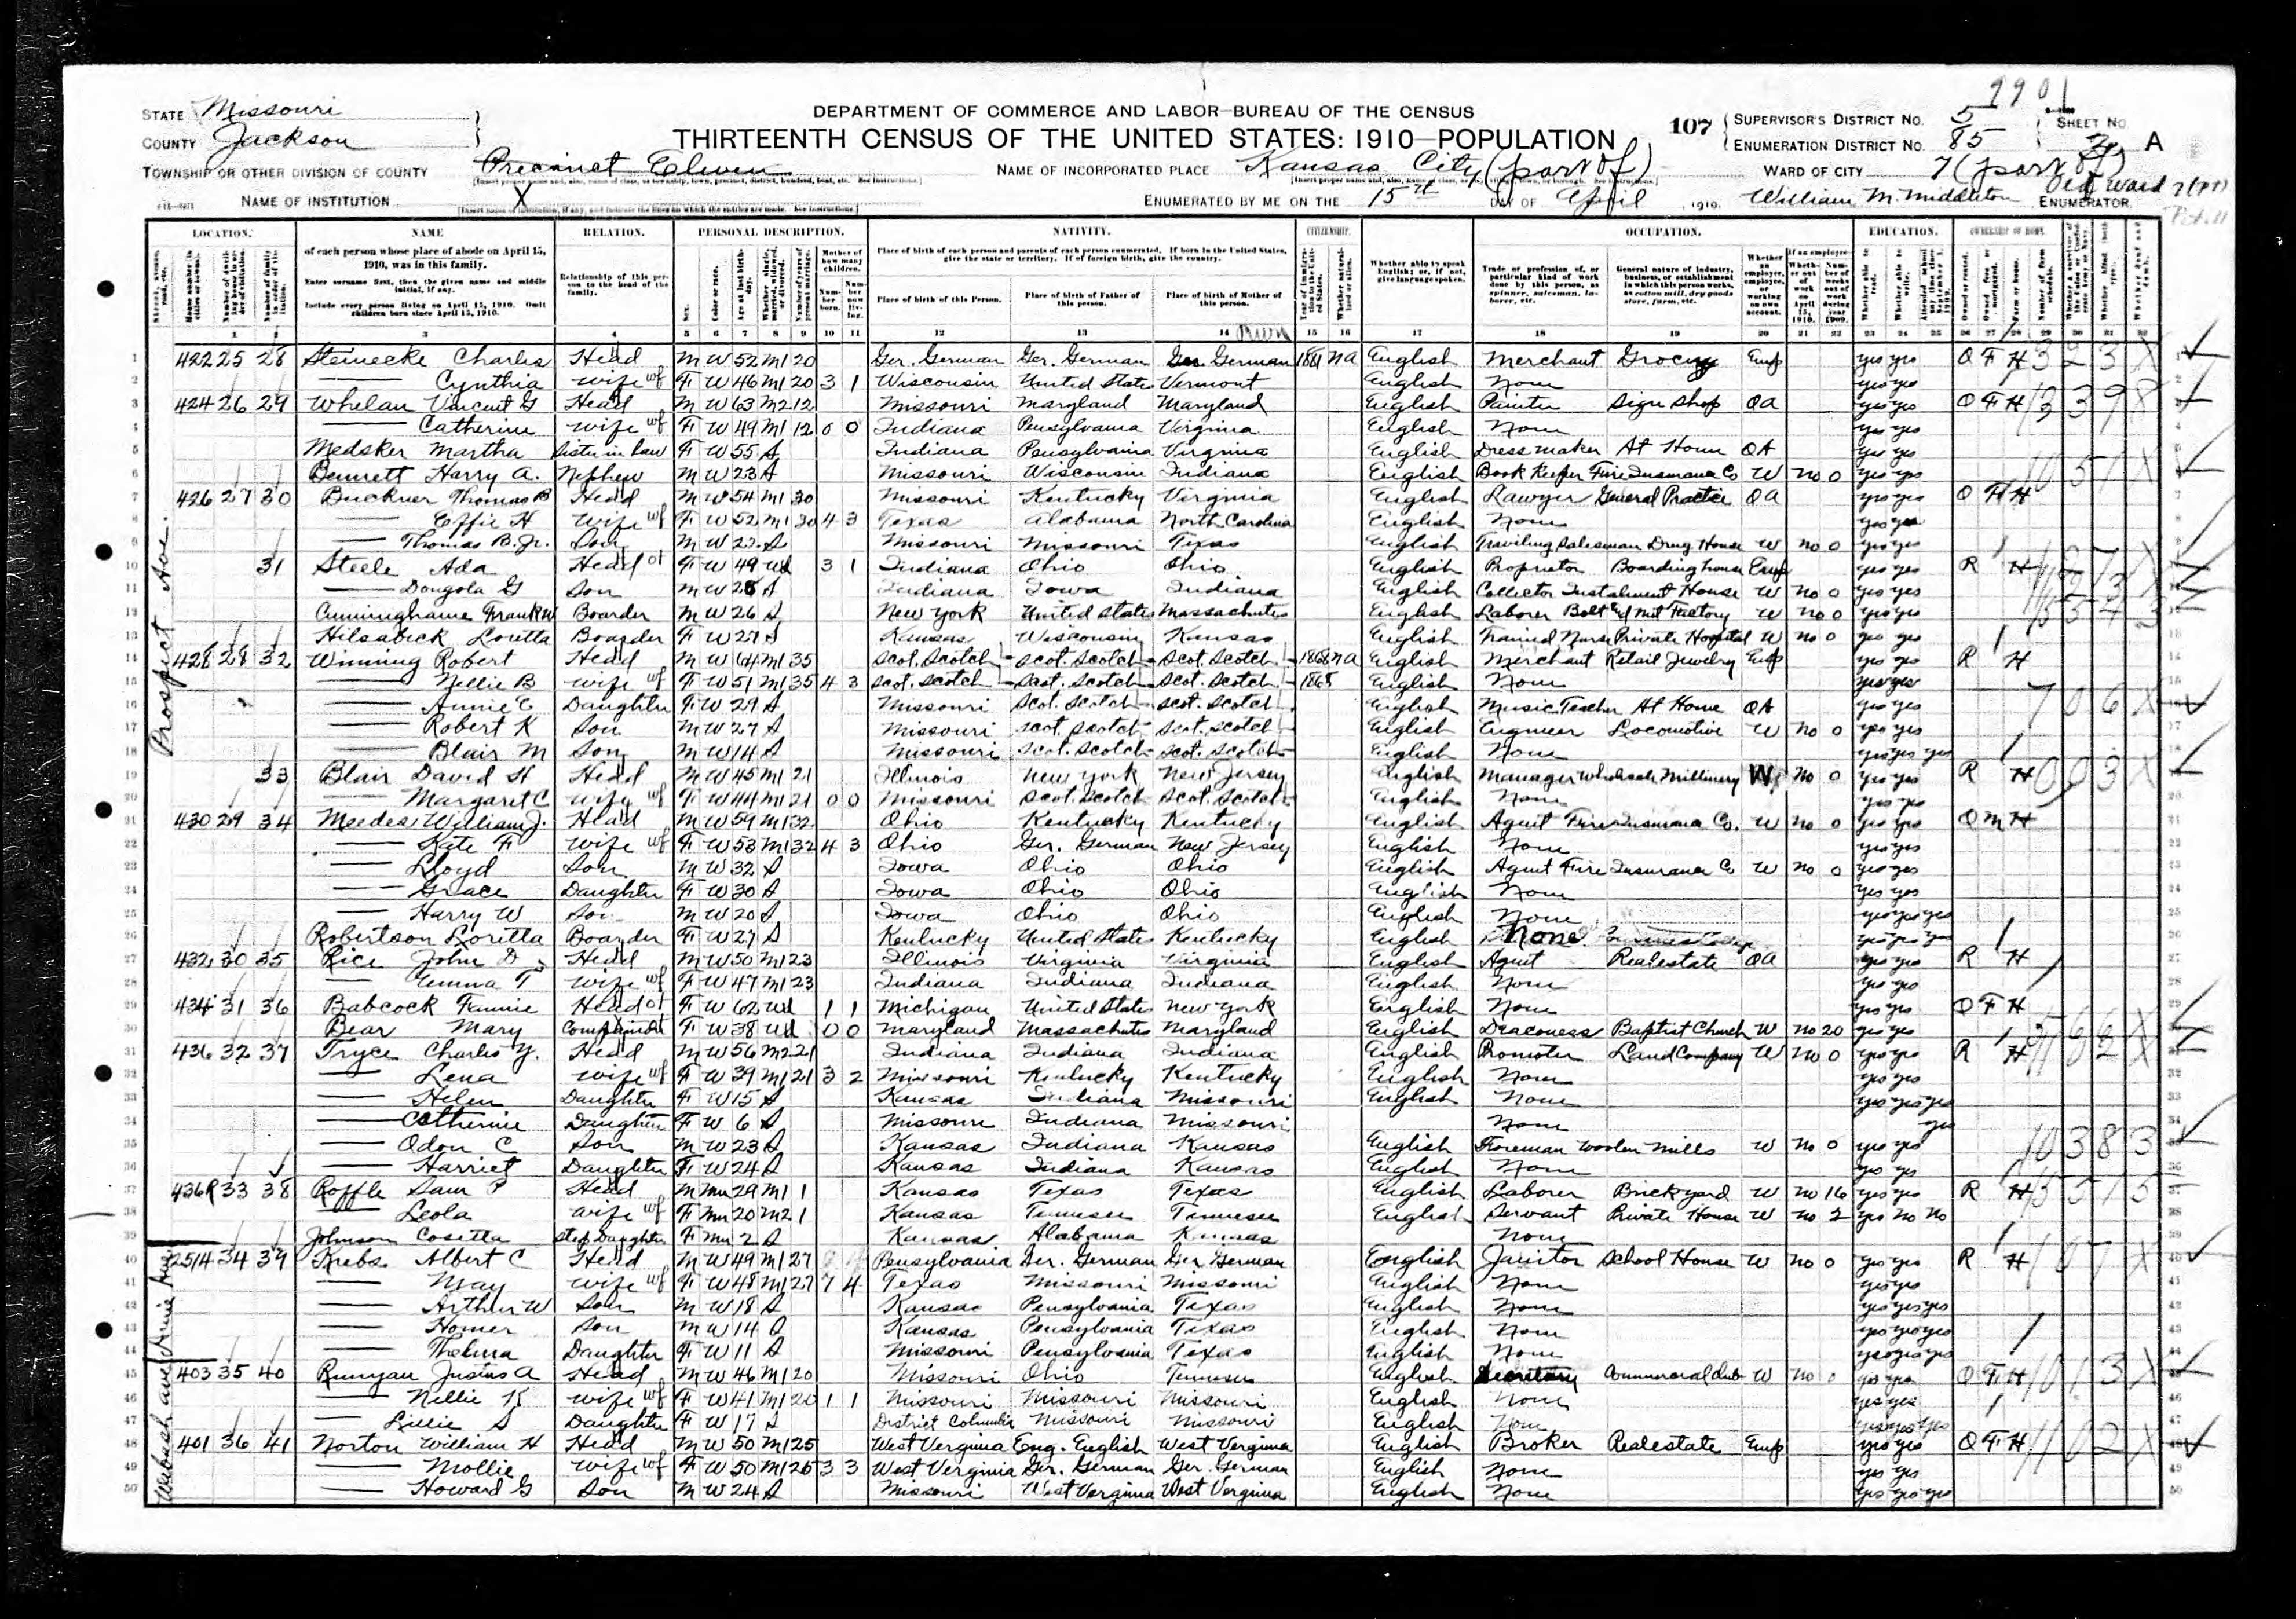 9901
STATE Missouri
COUNTY Jackson
TOWNSHIP OR OTHER DIVISION OF COUNTY Precinct Eleven
NAME OF INSTITUTION X
DEPARTMENT OF COMMERCE AND LABOR—BUREAU OF THE CENSUS
THIRTEENTH CENSUS OF THE UNITED STATES: 1910—POPULATION
NAME OF INCORPORATED PLACE Kansas City (part of)
ENUMERATED BY ME ON THE 15th DAY OF April, 1910.
107
SUPERVISOR'S DISTRICT No. 5
ENUMERATION DISTRICT No. 85
SHEET No. A
WARD OF CITY 7 (part of)
Old Ward 7 (pt)
William M. Middleton ENUMERATOR
LOCATION. NAME RELATION. PERSONAL DESCRIPTION. NATIVITY. CITIZENSHIP. OCCUPATION. EDUCATION. OWNERSHIP OF HOME.
of each person whose place of abode on April 15, 1910, was in this family.
Enter surname first, then the given name and middle initial, if any.
Include every person living on April 15, 1910. Omit children born since April 15, 1910.
Relationship of this person to the head of the family.
Place of birth of each person and parents of each person enumerated. If born in the United States, give the state or territory. If of foreign birth, give the country.
Place of birth of this Person. Place of birth of Father of this person. Place of birth of Mother of this person.
Whether able to speak English; or, if not, give language spoken.
Trade or profession of, or particular kind of work done by this person, as spinner, salesman, laborer, etc.
General nature of industry, business, or establishment in which this person works, as cotton mill, dry goods store, farm, etc.
Prospect Ave.
1 422 25 28 Steinecke Charles Head M W 52 M1 20 Ger. German Ger. German Ger. German 1881 na English Merchant Grocery Emp yes yes O F H
2 Cynthia wife F W 46 M1 20 3 1 Wisconsin United States Vermont English None yes yes
3 424 26 29 Whelan Vincent G Head M W 63 M2 12 Missouri Maryland Maryland English Painter Sign Shop OA yes yes O F H
4 Catherine wife F W 49 M1 12 0 0 Indiana Pensylvania Virginia English None yes yes
5 Medsker Martha Sister in law F W 55 S Indiana Pensylvania Virginia English Dressmaker At Home OA yes yes
6 Bennett Harry A. Nephew M W 23 S Missouri Wisconsin Indiana English Book Keeper Fire Insurance Co W no 0 yes yes
7 426 27 30 Buckner Thomas B Head M W 54 M1 30 Missouri Kentucky Virginia English Lawyer General Practice OA yes yes O F H
8 Effie H wife F W 52 M1 30 4 3 Texas Alabama North Carolina English None yes yes
9 Thomas B. Jr. Son M W S Missouri Missouri Texas English Traviling Salesman Drug House W no 0 yes yes
10 31 Steele Ada Head F W 49 Wd 3 1 Indiana Ohio Ohio English Proprietor Boarding house Emp yes yes R H
11 Dongola G Son M W S Indiana Iowa Indiana English Collector Instalment House W no 0 yes yes
12 Cunninghame Frank W Boarder M W 26 S New York United States Massachutes English Laborer Bolt and nut Factory W no 0 yes yes
13 Hilsabick Loretta Boarder F W 27 S Kansas Wisconsin Kansas English Trained Nurse Private Hospital W no 0 yes yes
14 428 28 32 Winning Robert Head M W 64 M1 35 Scot. Scotch Scot. Scotch Scot. Scotch 1868 na English Merchant Retail Jewelry Emp yes yes R H
15 Nellie B wife F W 51 M1 35 4 3 Scot. Scotch Scot. Scotch Scot. Scotch English None yes yes
16 Annie E Daughter F W 29 S Missouri Scot. Scotch Scot. Scotch English Music Teacher At Home OA yes yes
17 Robert K Son M W 27 S Missouri Scot. Scotch Scot. Scotch English Engineer Locomotive W no 0 yes yes
18 Blair M Son M W 14 S Missouri Scot. Scotch Scot. Scotch English None yes yes yes
19 33 Blair David H Head M W 45 M1 21 Illinois New York New Jersey English Manager Wholesale Millinery W no 0 yes yes R H
20 Margaret C wife F W 44 M1 21 0 0 Missouri Scot. Scotch Scot. Scotch English None yes yes
21 430 29 34 Meedes William J. Head M W 59 M1 32 Ohio Kentucky Kentucky English Agent Fire Insurance Co. W no 0 yes yes O M H
22 Kate F wife F W 53 M1 32 4 3 Ohio Ger. German New Jersey English None yes yes
23 Lloyd Son M W 32 S Iowa Ohio Ohio English Agent Fire Insurance Co W no 0 yes yes
24 Grace Daughter F W 30 S Iowa Ohio Ohio English None yes yes
25 Harry W Son M W 20 S Iowa Ohio Ohio English None yes yes yes
26 Robertson Loretta Boarder F W 27 S Kentucky United States Kentucky English None yes yes yes
27 432 30 35 Rice John D Head M W 50 M1 23 Illinois Virginia Virginia English Agent Realestate OA yes yes R H
28 Emma T wife F W 47 M1 23 Indiana Indiana Indiana English None yes yes
29 434 31 36 Babcock Fannie Head F W 62 Wd 1 1 Michigan United States New York English None yes yes O F H
30 Bear Mary Companion F W 38 Wd 0 0 Maryland Massachutes Maryland English Deaconess Baptist Church W no 20 yes yes
31 436 32 37 Tryce Charles Y. Head M W 56 M2 21 Indiana Indiana Indiana English Promoter Land Company W no 0 yes yes R H
32 Lena wife F W 39 M1 21 3 2 Missouri Kentucky Kentucky English None yes yes
33 Helen Daughter F W 15 S Kansas Indiana Missouri English None yes yes yes
34 Catherine Daughter F W 6 S Missouri Indiana Missouri None yes
35 Odon C Son M W 23 S Kansas Indiana Kansas English Foreman Woolen Mills W no 0 yes yes
36 Harriet Daughter F W 24 S Kansas Indiana Kansas English None yes yes
37 436R 33 38 Roffle Sam P Head M Mu 29 M1 1 Kansas Texas Texas English Laborer Brickyard W no 16 yes yes R H
38 Leola wife F Mu 20 M2 1 Kansas Tennesee Tennesee English Servant Private House W no 2 yes no no
39 Johnson Cosetta Step Daughter F Mu 2 S Kansas Alabama Kansas None
40 2514 34 39 Krebs Albert C Head M W 49 M1 27 Pensylvania Ger. German Ger German English Janitor School House W no 0 yes yes R H
41 May wife F W 48 M1 27 7 4 Texas Missouri Missouri English None yes yes
42 Arthur W Son M W 18 S Kansas Pensylvania Texas English None yes yes yes
43 Homer Son M W 14 S Kansas Pensylvania Texas English None yes yes yes
44 Thelma Daughter F W 11 S Missouri Pensylvania Texas English None yes yes yes
Wabash ave
45 403 35 40 Runyan Justus A Head M W 46 M1 20 Missouri Ohio Tennesee English Secretary Commercial Club W no 0 yes yes O F H
46 Nellie K wife F W 41 M1 20 1 1 Missouri Missouri Missouri English None yes yes
47 Lillie S Daughter F W 17 S District Columbia Missouri Missouri English None yes yes yes
48 401 36 41 Norton William H Head M W 50 M1 25 West Verginia Eng. English West Verginia English Broker Realestate Emp yes yes O F H
49 Mollie wife F W 50 M1 25 3 3 West Verginia Ger. German Ger. German English None yes yes
50 Howard G Son M W 24 S Missouri West Verginia West Verginia English None yes yes yes